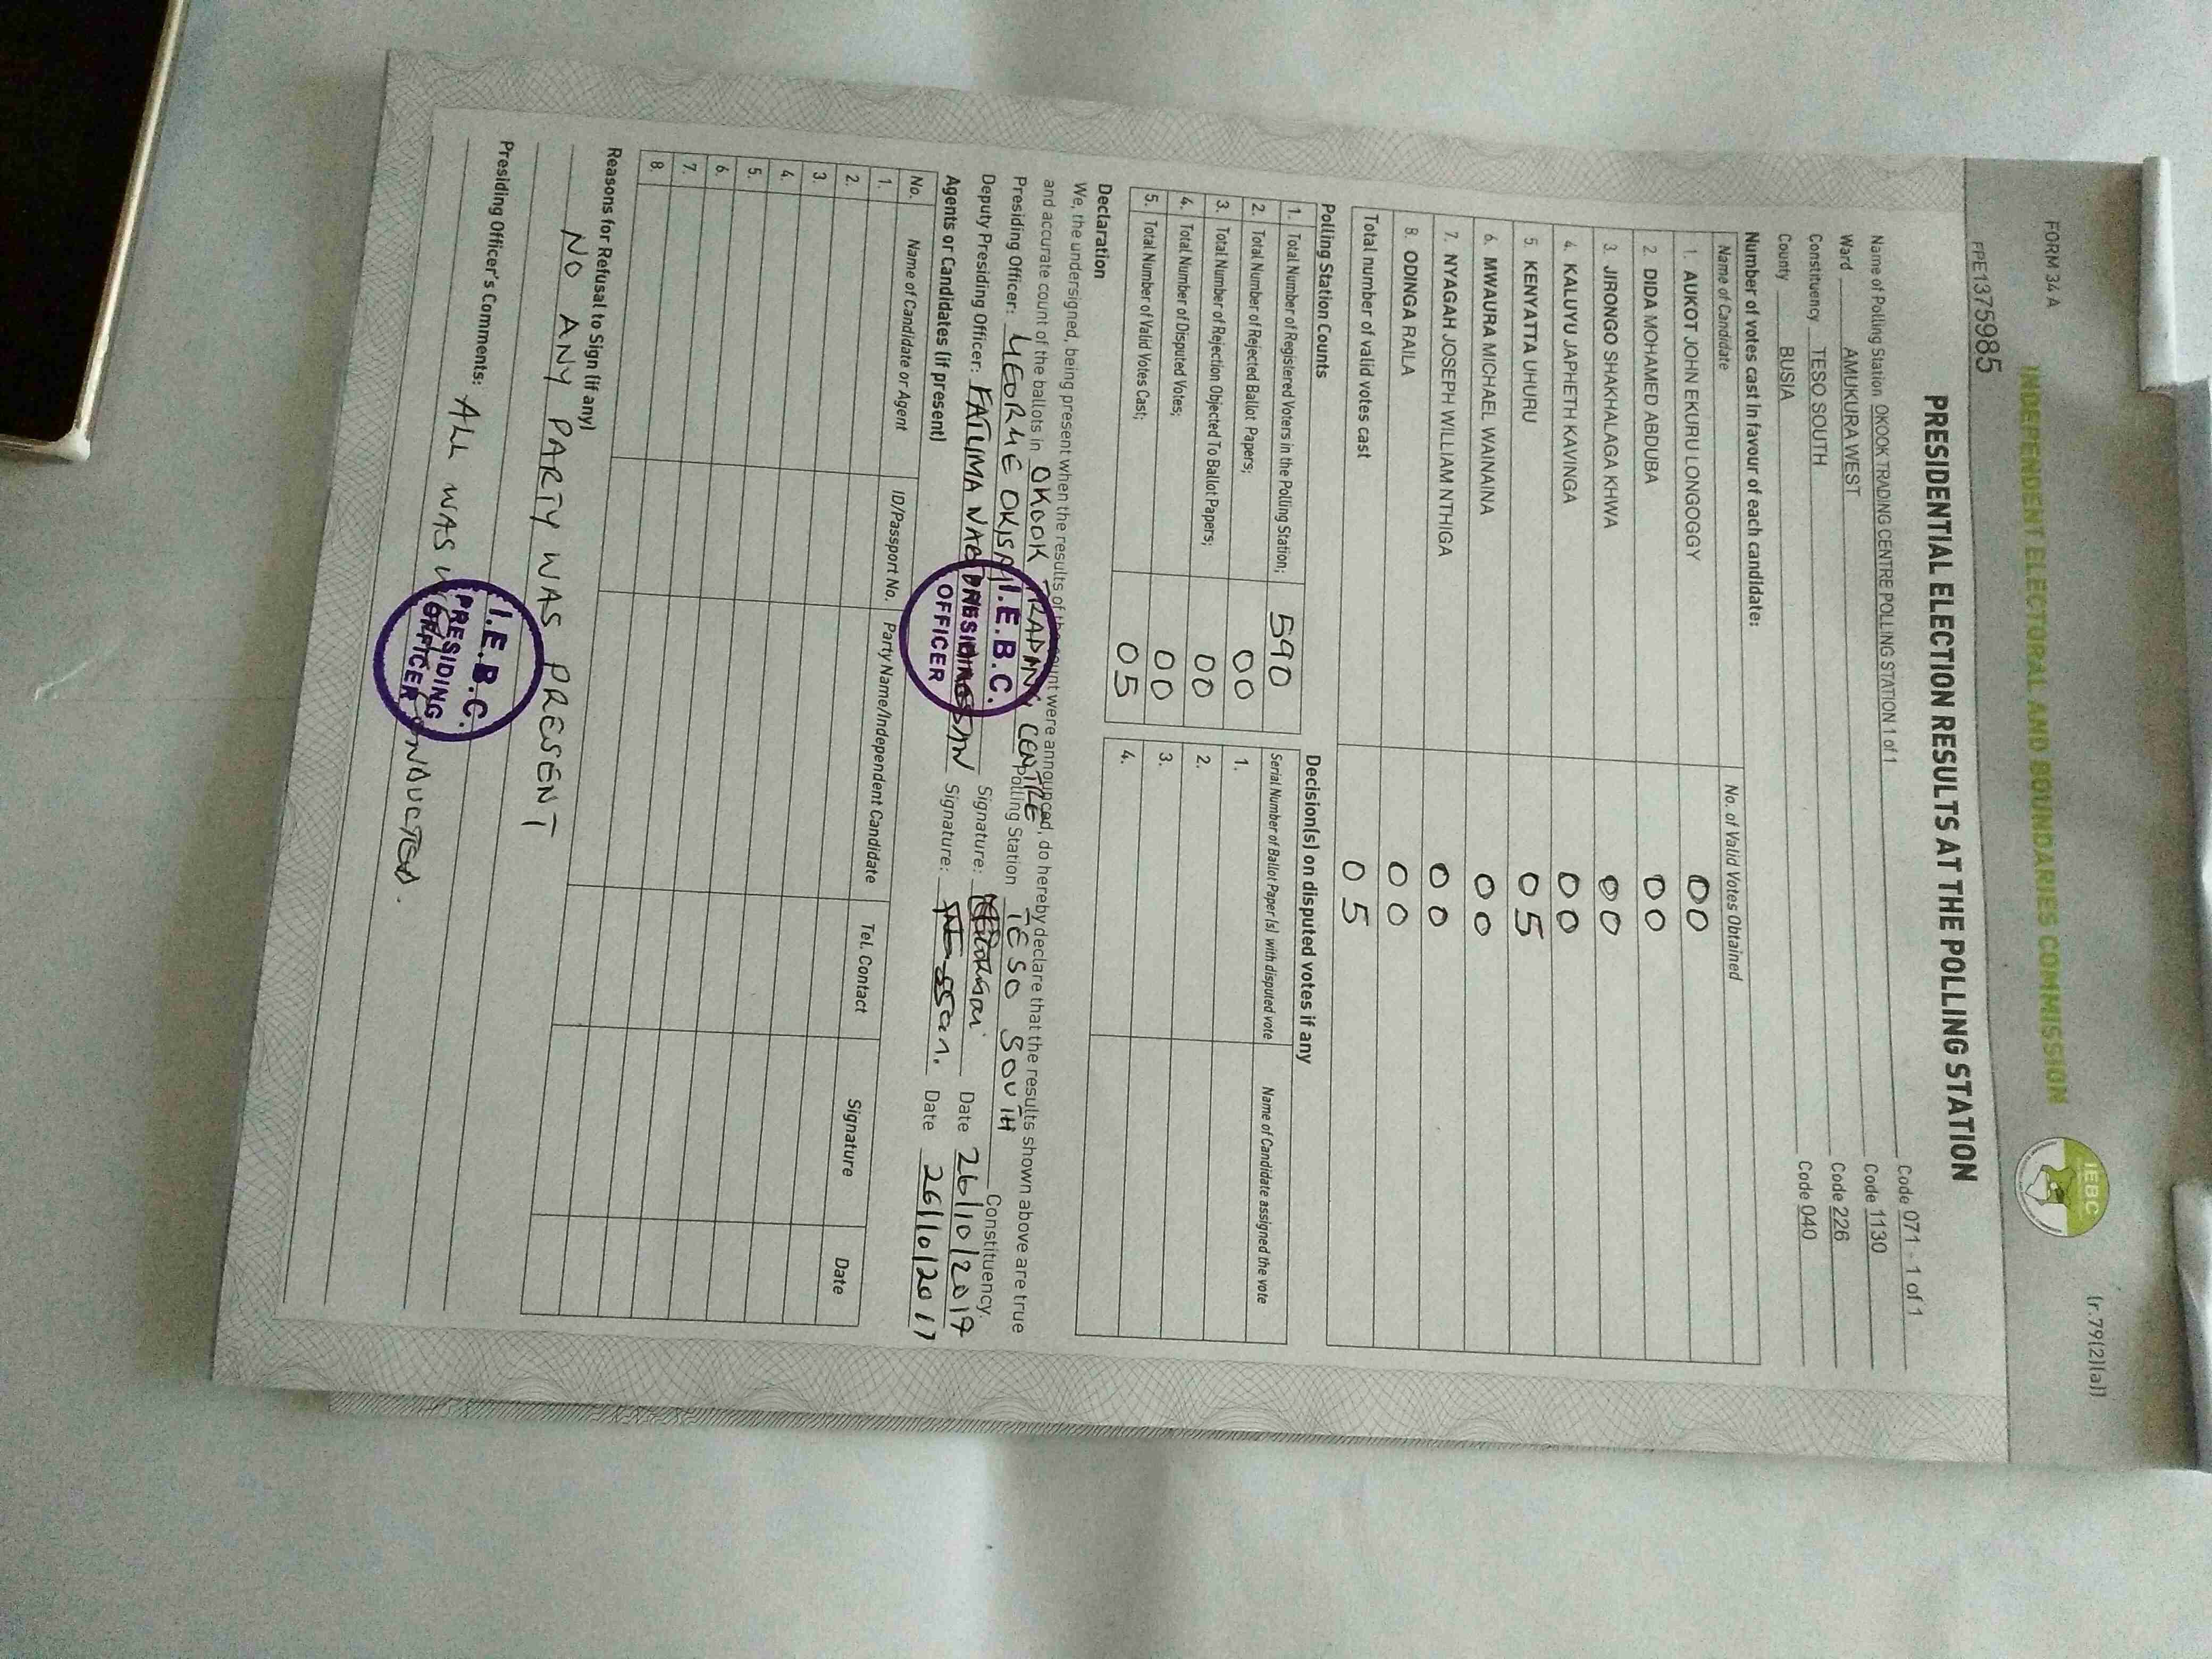 FORM 34 A
(r.79(2)(a))
INDEPENDENT ELECTORAL AND BOUNDARIES COMMISSION
IEBC
FPE1375985
PRESIDENTIAL ELECTION RESULTS AT THE POLLING STATION
Name of Polling Station OKOOK TRADING CENTRE POLLING STATION 1 of 1 Code 071 - 1 of 1
Ward AMUKURA WEST Code 1130
Constituency TESO SOUTH Code 226
County BUSIA Code 040
Number of votes cast in favour of each candidate:
Name of Candidate No. of Valid Votes Obtained
1. AUKOT JOHN EKURU LONGOGGY 00
2. DIDA MOHAMED ABDUBA 00
3. JIRONGO SHAKHALAGA KHWA 00
4. KALUYU JAPHETH KAVINGA 00
5. KENYATTA UHURU 05
6. MWAURA MICHAEL WAINAINA 00
7. NYAGAH JOSEPH WILLIAM NTHIGA 00
8. ODINGA RAILA 00
Total number of valid votes cast 05
Polling Station Counts
1. Total Number of Registered Voters in the Polling Station; 590
2. Total Number of Rejected Ballot Papers; 00
3. Total Number of Rejection Objected To Ballot Papers; 00
4. Total Number of Disputed Votes; 00
5. Total Number of Valid Votes Cast; 05
Decision(s) on disputed votes if any
Serial Number of Ballot Paper (s) with disputed vote Name of Candidate assigned the vote
1.
2.
3.
4.
Declaration
We, the undersigned, being present when the results of the count were announced, do hereby declare that the results shown above are true
and accurate count of the ballots in OKOOK TRADING CENTRE Polling Station TESO SOUTH Constituency.
Presiding Officer: Signature: Date 26/10/2017
Deputy Presiding Officer: FATUMA Signature: Date 26/10/2017
I.E.B.C.
PRESIDING
OFFICER
Agents or Candidates (if present)
No. Name of Candidate or Agent ID/Passport No. Party Name/Independent Candidate Tel. Contact Signature Date
1.
2.
3.
4.
5.
6.
7.
8.
Reasons for Refusal to Sign (if any)
NO ANY PARTY WAS PRESENT
Presiding Officer's Comments: ALL WAS CONDUCTED.
I.E.B.C.
PRESIDING
OFFICER